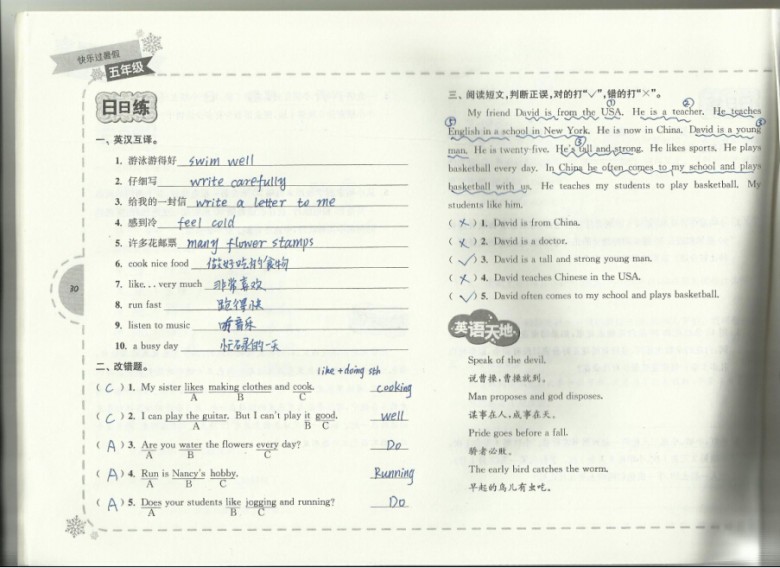 快乐过暑假
五年级
日日练
一、英汉互译。
1. 游泳游得好 swim well
2. 仔细写 write carefully
3. 给我的一封信 write a letter to me
4. 感到冷 feel cold
5. 许多花邮票 many flower stamps
6. cook nice food 做好吃的食物
7. like... very much 非常喜欢
8. run fast 跑得快
9. listen to music 听音乐
10. a busy day 忙碌的一天
二、改错题。
like + doing sth
( C ) 1. My sister likes making clothes and cook. cooking
A B C
( C ) 2. I can play the guitar. But I can't play it good. well
A B C
( A ) 3. Are you water the flowers every day? Do
A B C
( A ) 4. Run is Nancy's hobby. Running
A B C
( A ) 5. Does your students like jogging and running? Do
A B C
30
三、阅读短文,判断正误,对的打“✓”,错的打“×”。
My friend David is from the USA. He is a teacher. He teaches
English in a school in New York. He is now in China. David is a young
man. He is twenty-five. He's tall and strong. He likes sports. He plays
basketball every day. In China he often comes to my school and plays
basketball with us. He teaches my students to play basketball. My
students like him.
( × ) 1. David is from China.
( × ) 2. David is a doctor.
( ✓ ) 3. David is a tall and strong young man.
( × ) 4. David teaches Chinese in the USA.
( ✓ ) 5. David often comes to my school and plays basketball.
英语天地
Speak of the devil.
说曹操,曹操就到。
Man proposes and god disposes.
谋事在人,成事在天。
Pride goes before a fall.
骄者必败。
The early bird catches the worm.
早起的鸟儿有虫吃。